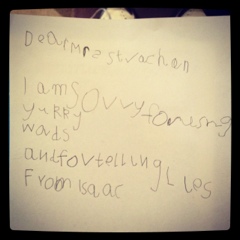 Dear Mrs Strachan
I am Sovvy for using
yuRRy
wads
and fov telling Lies
From Isaac